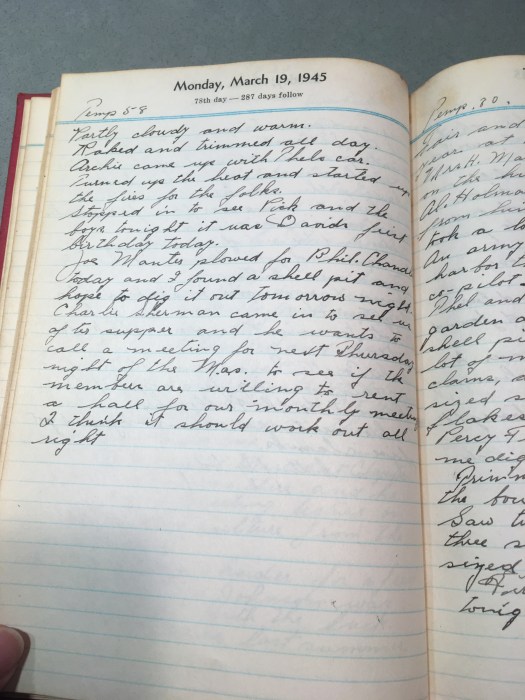 Monday, March 19, 1945
78th day — 287 days follow
Temp 58
Partly cloudy and warm.
Raked and trimmed all day
Archie came up with Phels car.
Turned up the heat and started up
the fires for the folks.
Stopped in to see Dick and the
boys tonight it was Davids first
birthday today.
Joe Manter plowed for Phil. Chandler
today and I found a shell pit and
hope to dig it out tomorrow night.
Charlie Sherman came in to see us
after supper and he wants to
call a meeting for next Thursday
night of the Mas. to see if the
members are willing to rent
a hall for our monthly meeting
I think it should work out all
right
Temp. 30.
Fair and
year at
Mrs H.
in the
from
took a
An army
harbor
co-pilot
Phel and
garden a
shell pi
lot of
clams, s
sized s
flakes
Percy
me dig
Trimm
the bou
Saw t
three s
sized
tonig